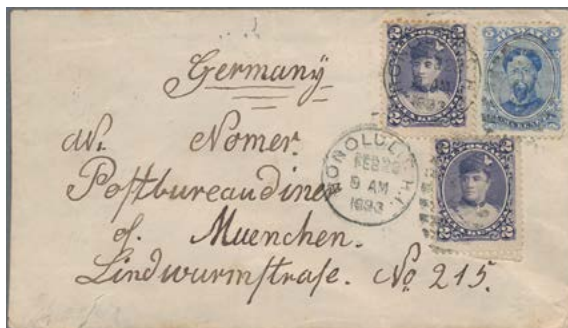 Germany
W. Nomer.
Postbureaudiner
of. Muenchen.
Lindwurmstraße. No 215.
HONOLULU H.I.
FEB 28
9 AM
1893
2 2
2 2
5 5